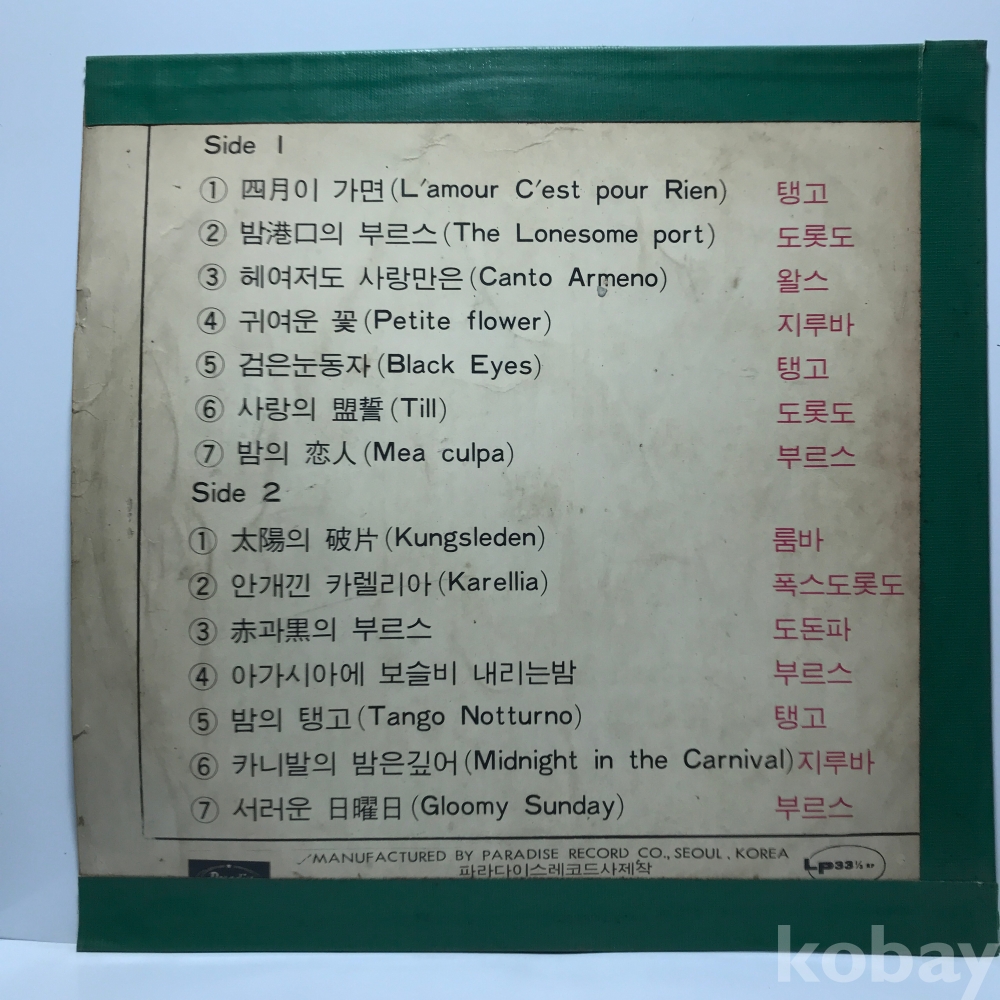 Side 1
① 四月이 가면(L'amour C'est pour Rien) 탱고
② 밤港口의 부르스(The Lonesome port) 도롯도
③ 헤여저도 사랑만은(Canto Armeno) 왈스
④ 귀여운 꽃(Petite flower) 지루바
⑤ 검은눈동자(Black Eyes) 탱고
⑥ 사랑의 盟誓(Till) 도롯도
⑦ 밤의 恋人(Mea culpa) 부르스
Side 2
① 太陽의 破片(Kungsleden) 룸바
② 안개낀 카렐리아(Karellia) 폭스도롯도
③ 赤과黒의 부르스 도돈파
④ 아가시아에 보슬비 내리는밤 부르스
⑤ 밤의 탱고(Tango Notturno) 탱고
⑥ 카니발의 밤은깊어(Midnight in the Carnival) 지루바
⑦ 서러운 日曜日(Gloomy Sunday) 부르스
MANUFACTURED BY PARADISE RECORD CO., SEOUL, KOREA
파라다이스레코드사제작
Lp33⅓
kobay